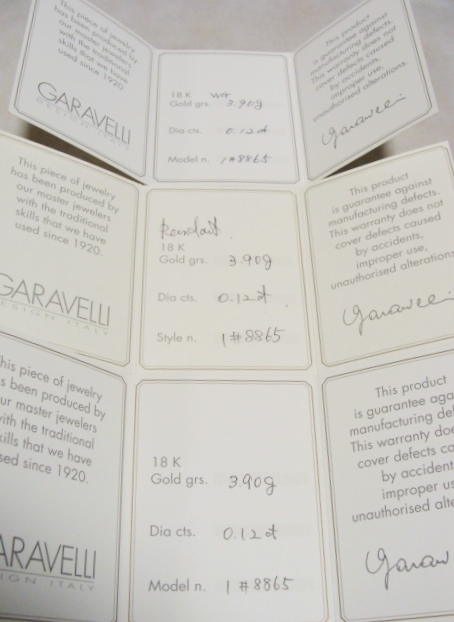 This piece of jewelry
has been produced by
our master jewelers
with the traditional
skills that we have
used since 1920.
GARAVELLI
DESIGN ITALY
18 K
Gold grs. 3.90g
Dia cts. 0.12ct
Model n. 1#8865
This product
is guarantee against
manufacturing defects.
This warranty does not
cover defects caused
by accidents,
improper use,
unauthorised alterations.
Garavelli
This piece of jewelry
has been produced by
our master jewelers
with the traditional
skills that we have
used since 1920.
GARAVELLI
DESIGN ITALY
Pendant.
18 K
Gold grs. 3.90g
Dia cts. 0.12ct.
Style n. 1#8865
This product
is guarantee against
manufacturing defects.
This warranty does not
cover defects caused
by accidents,
improper use,
unauthorised alterations
Garavelli
his piece of jewelry
s been produced by
ur master jewelers
ith the traditional
kills that we have
sed since 1920.
ARAVELLI
SIGN ITALY
18 K
Gold grs. 3.90g
Dia cts. 0.12ct
Model n. 1#8865
This product
is guarantee aga
manufacturing def
This warranty doe
cover defects ca
by accident
improper us
unauthorised alte
Garav